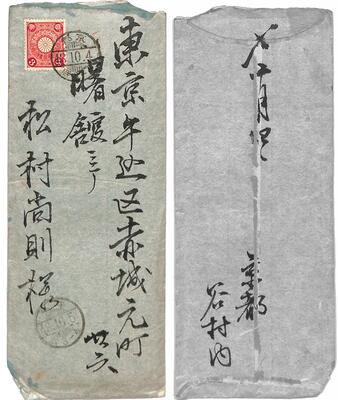 東京牛込区赤城元町
卅六
曙館ニテ
松村尚則様
10.4
十月四日
京都
谷村内